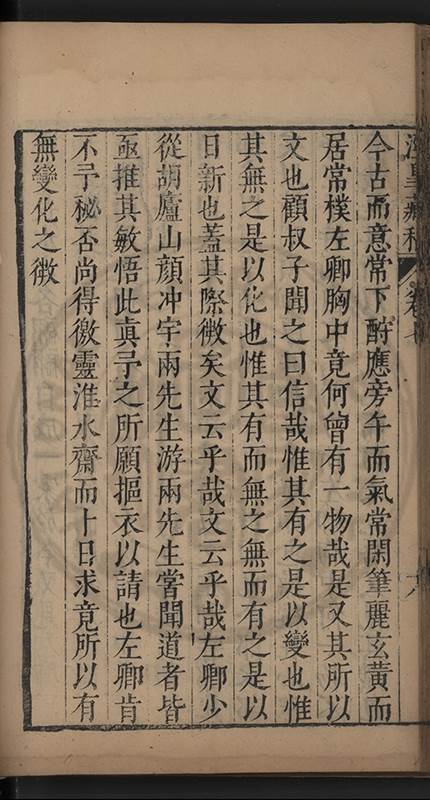 涇皋藏稿 卷七
今古而意常下酧應旁午而氣常閑筆麗玄黃而
居常樸左卿胸中竟何曾有一物哉是又其所以
文也顧叔子聞之曰信哉惟其有之是以變也惟
其無之是以化也惟其有而無之無而有之是以
日新也蓋其際微矣文云乎哉文云乎哉左卿少
從胡廬山顔冲宇兩先生游兩先生嘗聞道者皆
亟推其敏悟此眞予之所願摳衣以請也左卿肯
不予秘否尚得徼靈淮水齋而十日求竟所以有
無變化之微